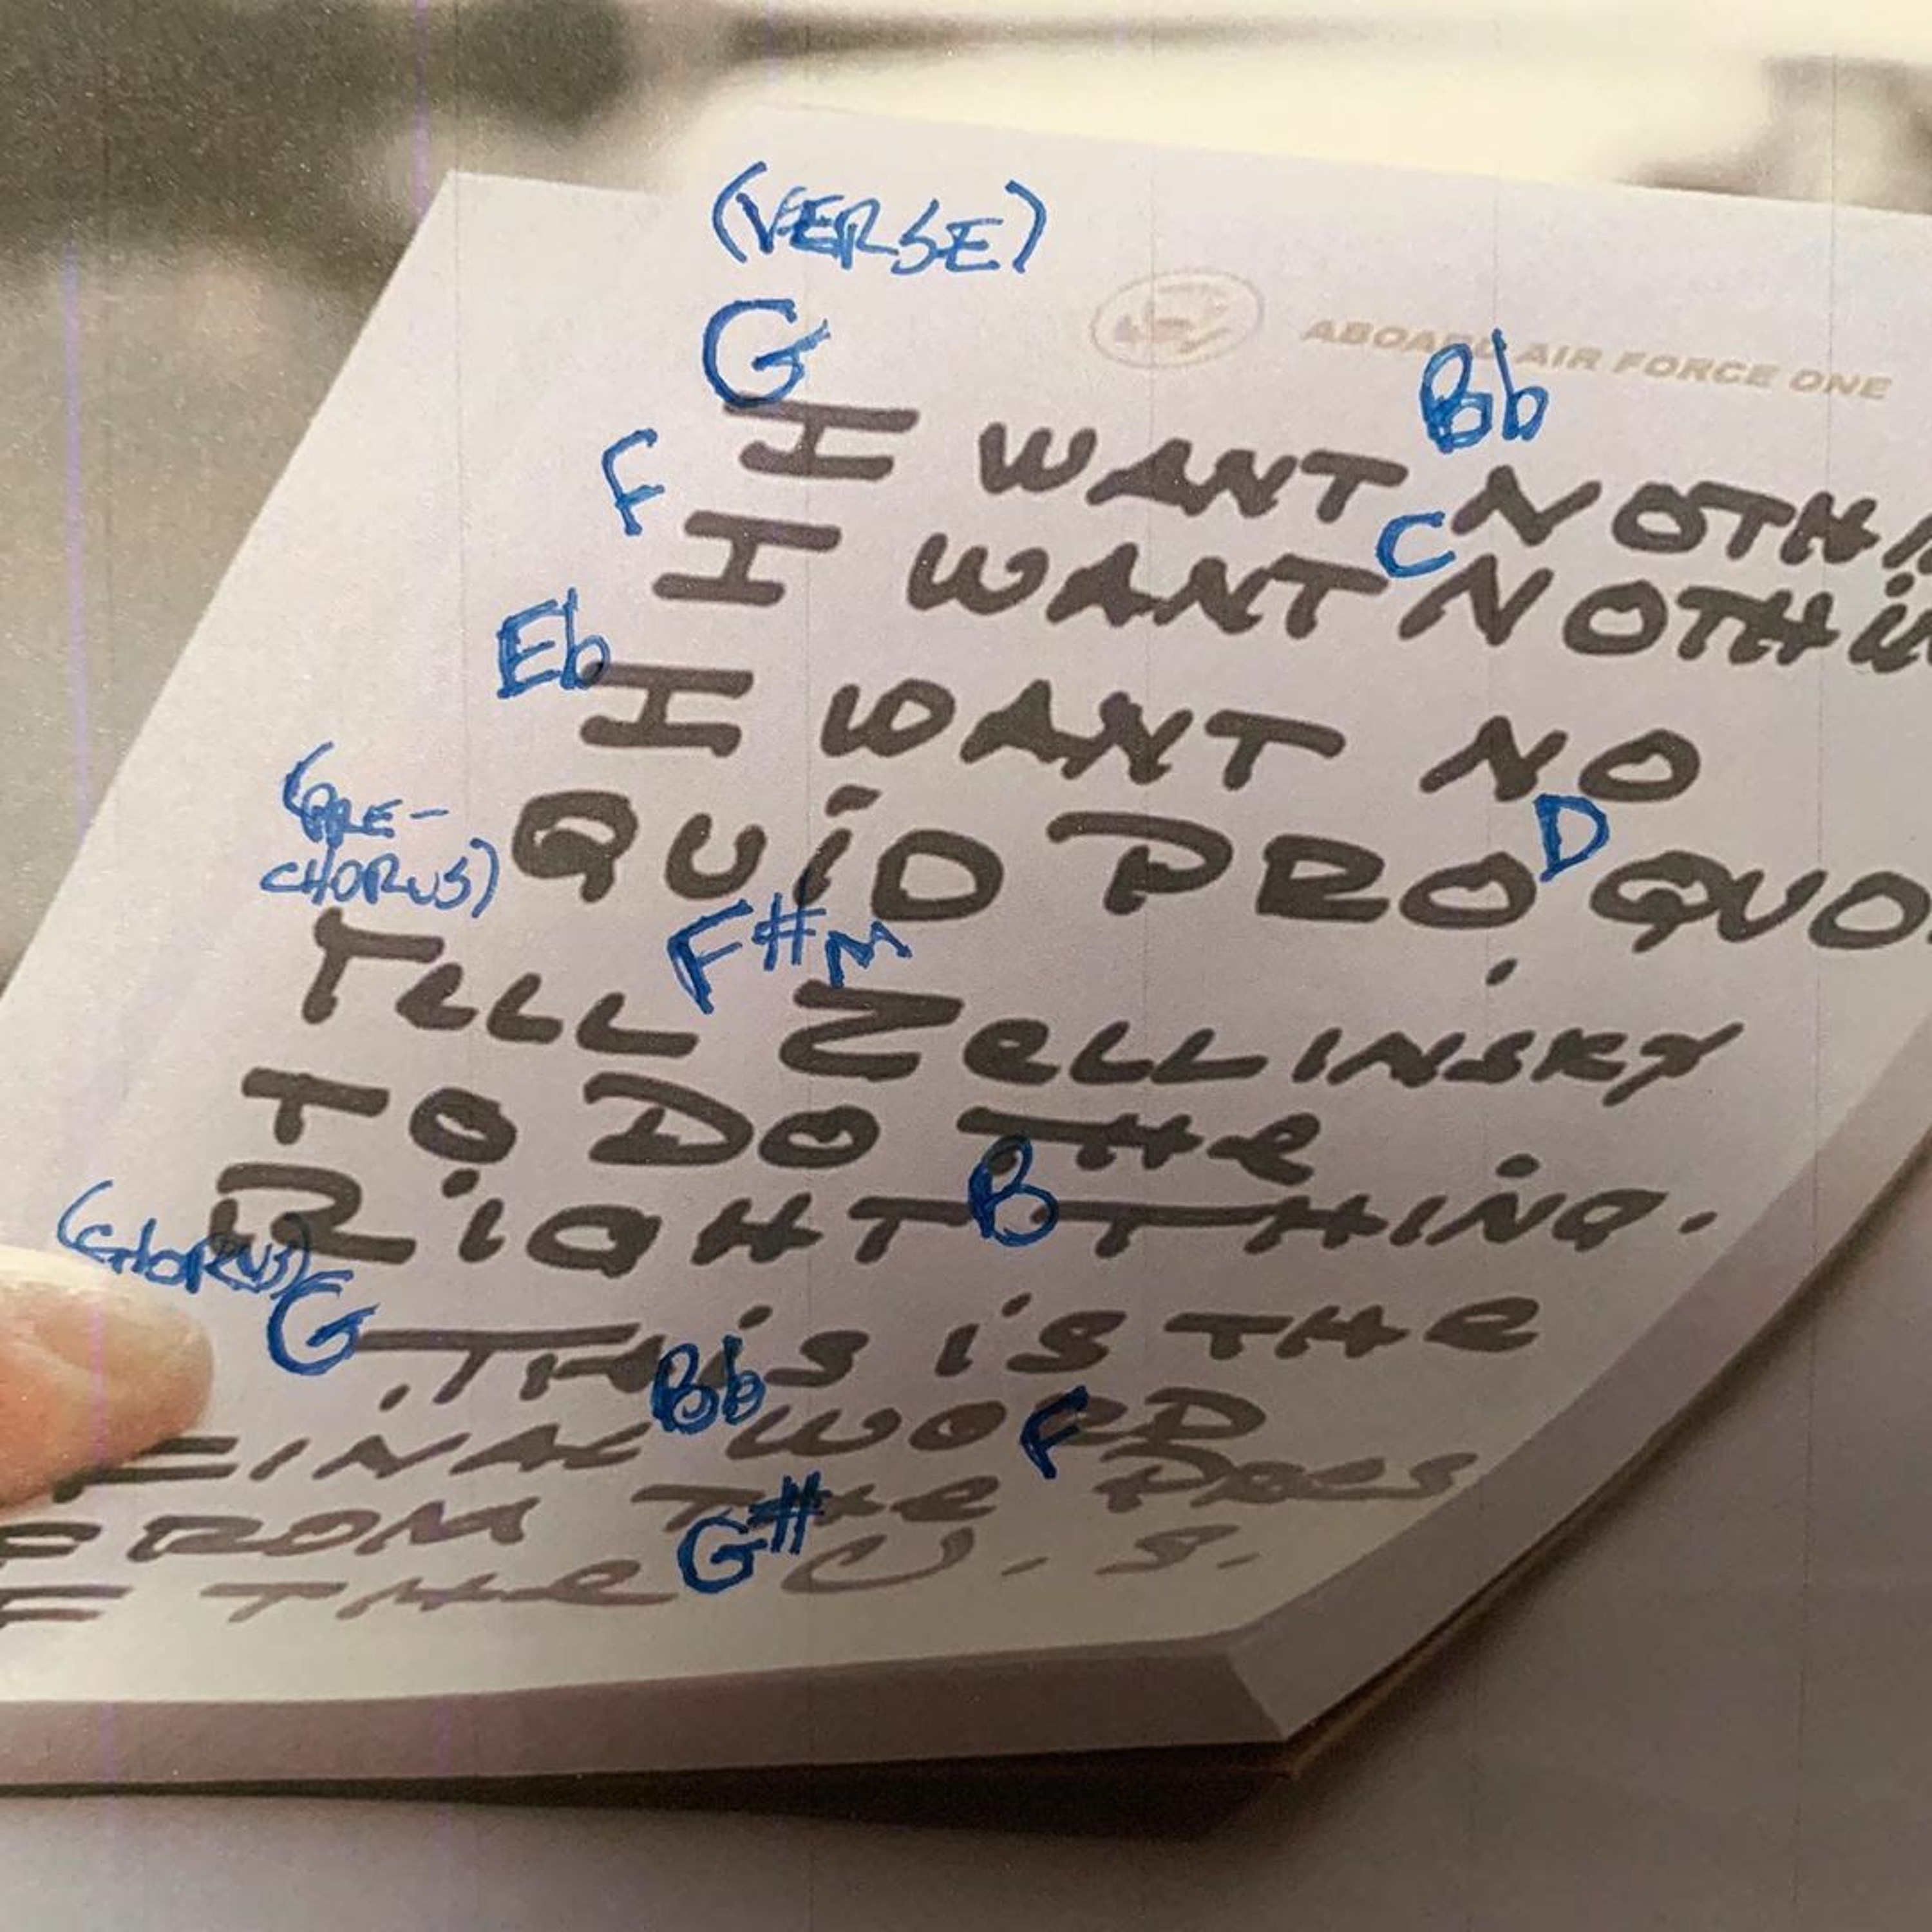 (VERSE)
ABOARD AIR FORCE ONE
G Bb
I WANT NOTHI
F C
I WANT NOTHIN
Eb
I WANT NO
D
QUID PRO QUO.
(PRE-
CHORUS)
F#M
TELL ZELLINSKY
TO DO THE
B
RIGHT THING.
(CHORUS)
G
THIS IS THE
Bb
FINAL WORD
F
FROM THE PRES
G#
F THE U.S.